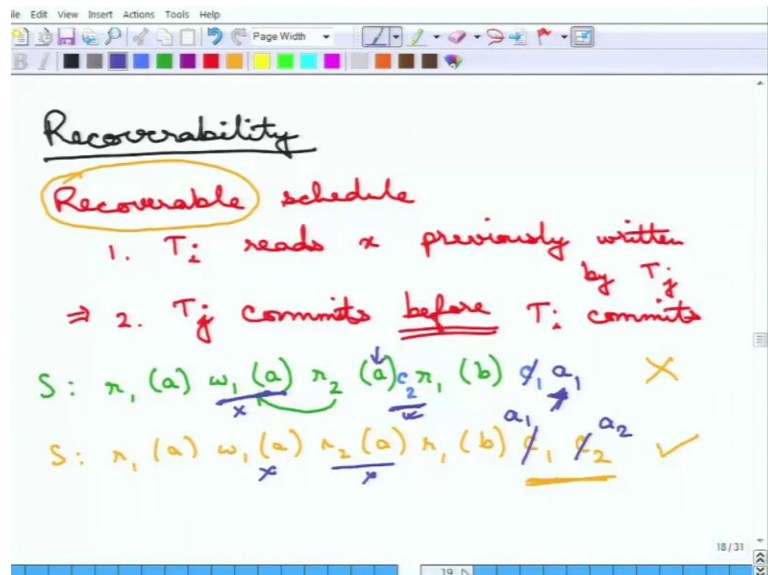 ile Edit View Insert Actions Tools Help
Page Width
B I
Recoverability
Recoverable schedule
1. Ti reads x previously written
by Tj
⇒ 2. Tj commits before Ti commits
S: r1 (a) w1 (a) r2 (a) c2 r1 (b) c1 a1 ✗
x
a1 a2
S: r1 (a) w1 (a) r2 (a) r1 (b) c1 c2 ✓
x x
18/31
19